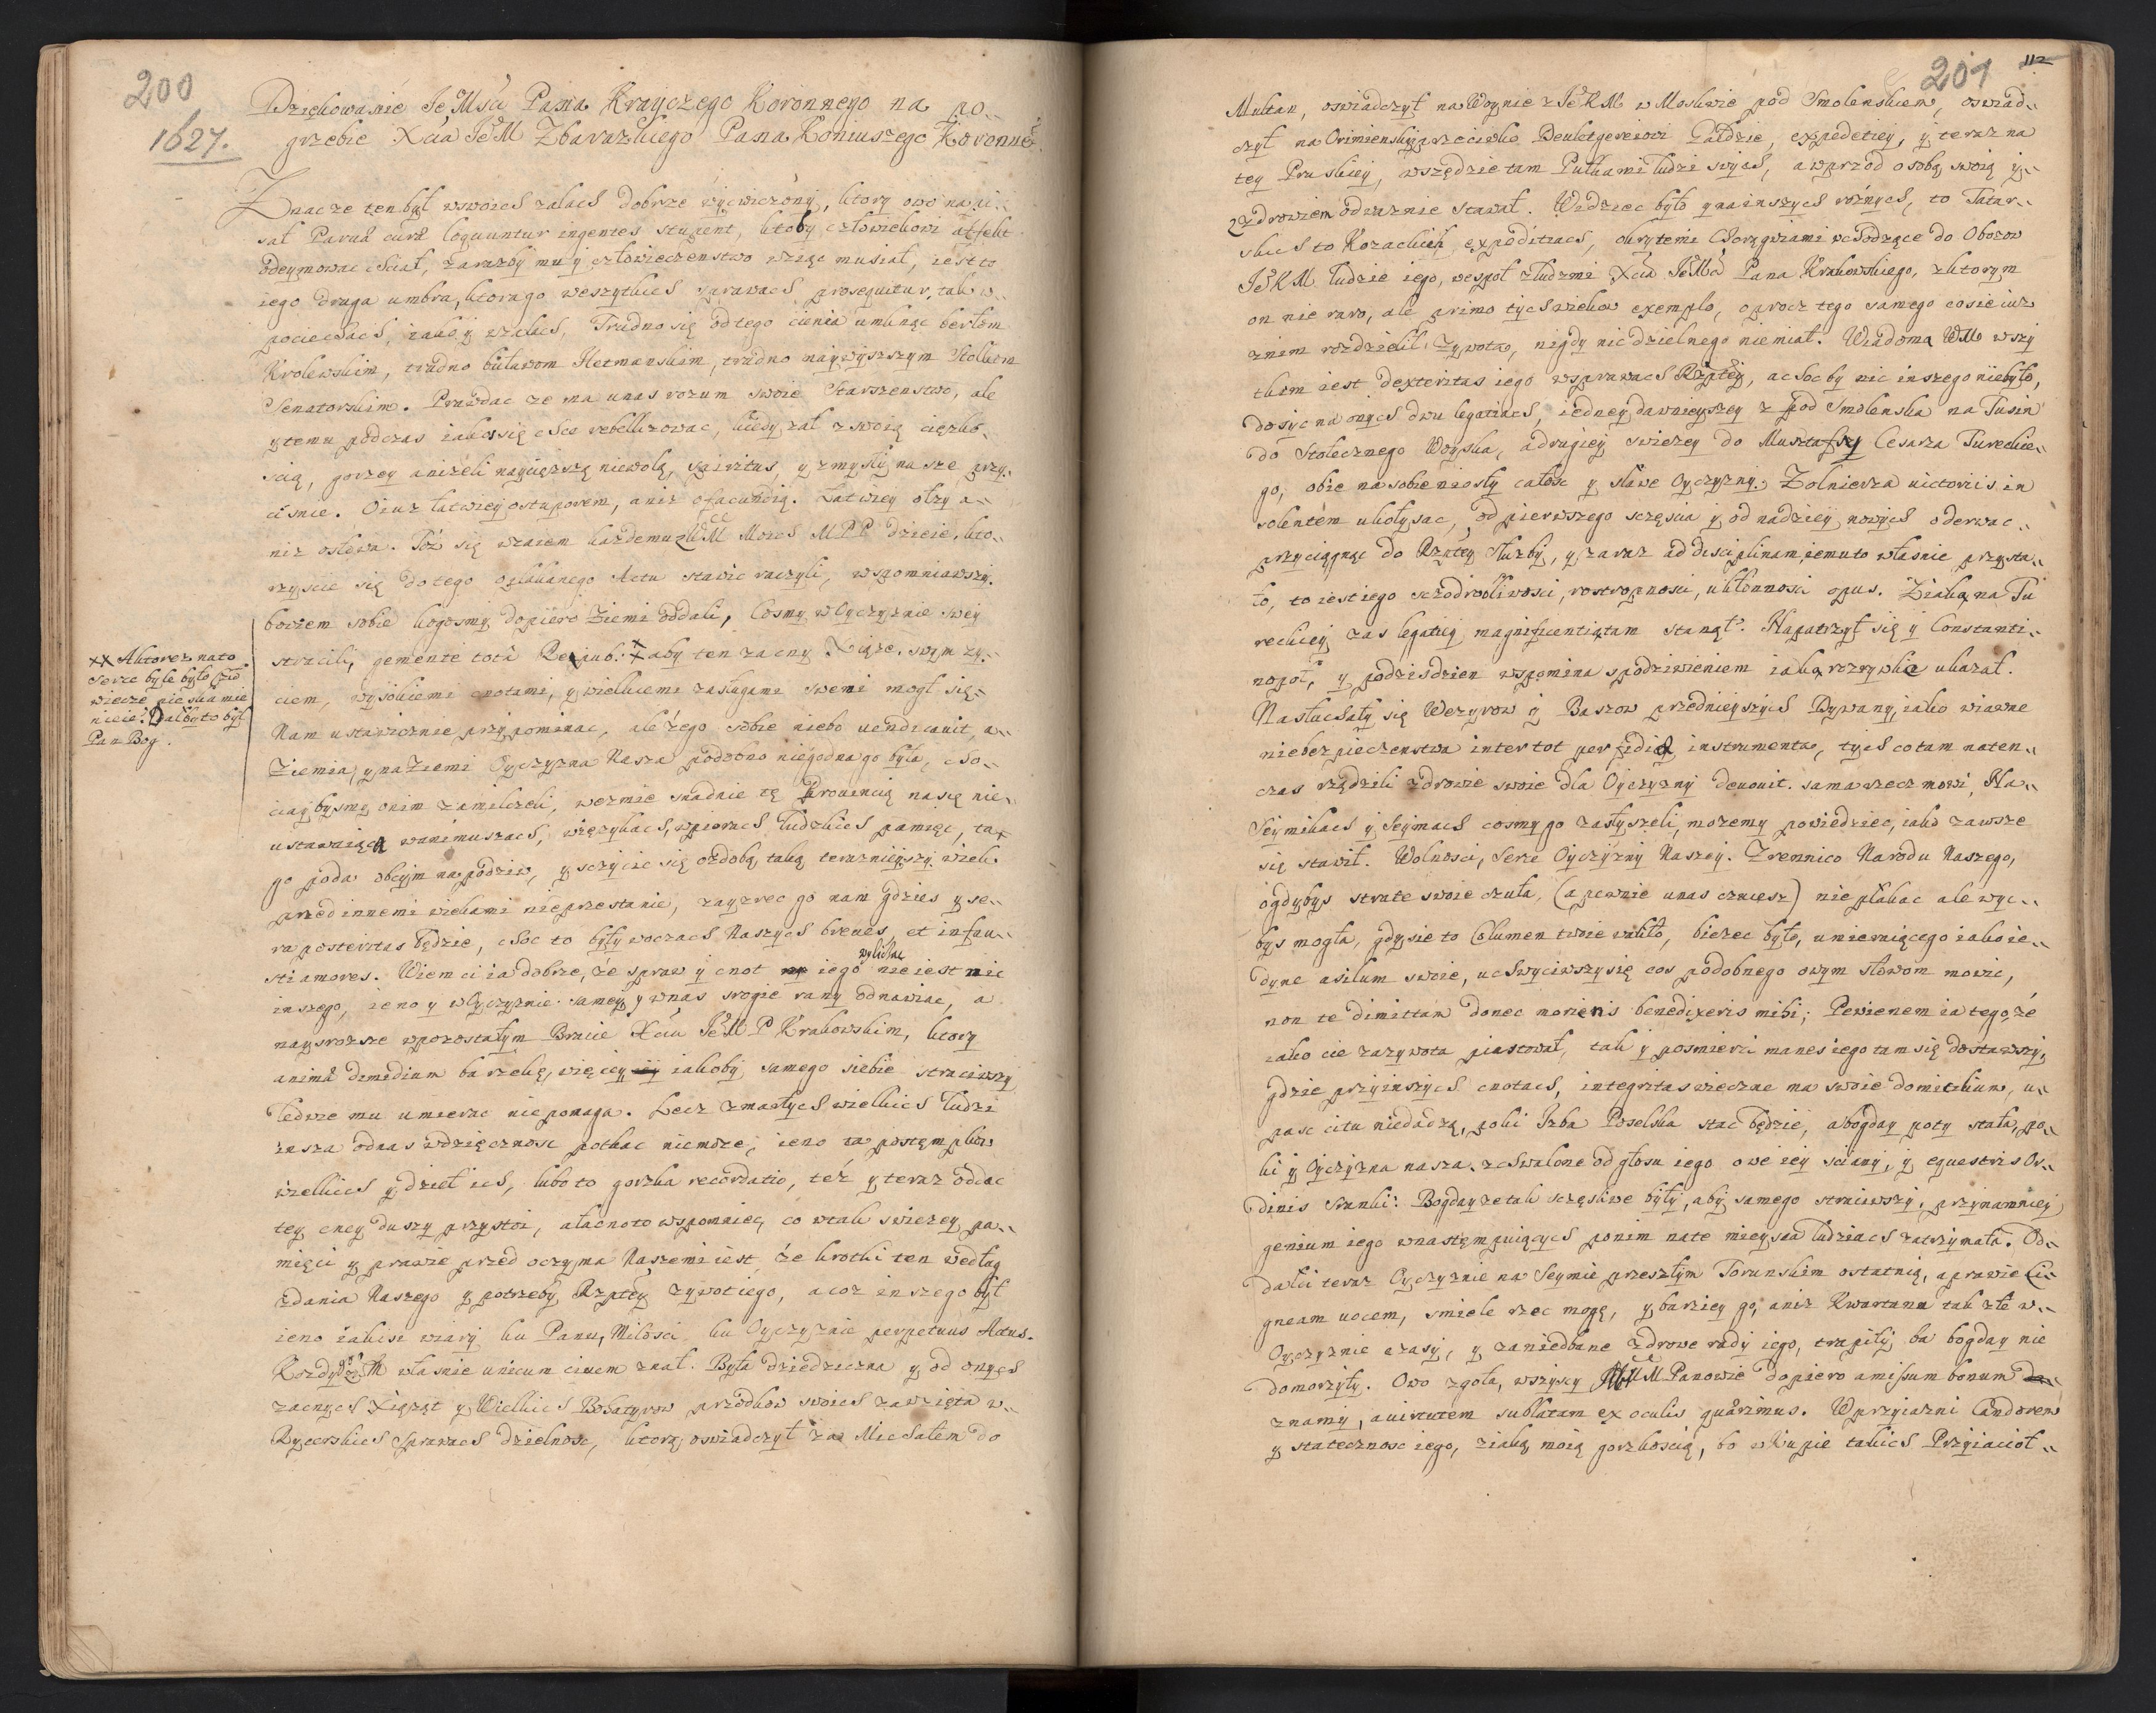 200
1627.
Dziękowanié Je Mści Pana Krayczego Koronnego na po„
grzebie Xcia JeM Zbarazkiego Pana Koniuszego Koronneº.
Znac ze ten był w swoich zalach dobrze wycwiczony, ktory owo napi„
sał Parua curæ loquuntur ingentes stupent, ktoby człowiekowi affekt
odeymowac chciał, zarazby mu y człowieczenstwo wziąc musiał, iest to
iego druga umbra, ktora go we szytkich sprawach prosequitur, tak w
pociechach, iako y w zalach, Trudno się od tego cienia umknąc berłom
Krolewskim, trudno buławom Hetmanskim, trudno naywyszszym Stolkom
Senatorskim. Prawdac ze ma u nas rozum swoie Starszenstwo, ale
y temu podczas iakos się chce rebellizowac, kiedy zal z swoią cięzko„
scią, gorzey anizeli naycięzszą niewolą, spiritus y zmysły nasze przy„
cisnie. O iuz łatwiey o stuporem, a niz o facundią. Łatwiey o łzy a„
niz o słowa. Toz się wzaiem kazdemu z WM Moich MPP dzieie, kto„
rzyscie się do tego opłakanego Actu stawic raczyli, wspomniawszy
bowiem sobie kogosmy dopiero Ziemi oddali, Cosmy w Oyczyznie swey
stracili, gemente totâ Repub: X aby ten zacny Xiąze, swym zy„
ciem, wysokiemi cnotami, y wielkiemi zasługami swemi mogł się
Nam ustawicznie przypominac, ale ze go sobie niebo uendicauit, a„
Ziemia, y na Ziemi Oyczyzna Nasza podobno niegodna go była, cho„
ciaybysmy o nim zamilczeli, wezmie snadnie tę Prouincią na się nie„
ustawaiącą w animuszach, więzykach, w piorach ludzkich pamięc, ta
go poda obcym na podziw, y sczycic się ozdobą taką terazniejszy wiek
przed innemi wiekami nie przestanie, zayzrec go nam gdzies y se„
ra posteritas będzie, choc to były w oczach Naszych breues, et infau„
sti amores. Wiem ci ia dobrze, ze spraw y cnot iego wyliczac nie iest nic
inszego, ieno y w Oyczyznie samey, y w nas srogie rany odnawiac, a
naysrozsze w pozostałym Bracie Xciu JeM P Krakowskim, ktory
animæ dimidium ba rzekę, więcey iakoby samego siebie straciwszy
ledwie mu umierac nie pomaga. Lecz zmarłych wielkich ludzi
insza od nas wdzięcznosc potkac niemoze, ieno ta postęmpkow
wielkich y dzieł ich, lubo to gorzka recordatio, też y teraz oddac
tey cney duszy przystoi, a łacno to wspomniec, co w tak swiezey pa„
mięci y prawie przed oczyma Naszemi iest, że krotki ten według
zdania Naszego y potrzeby Rzptey zywot iego, a coz inszego był
ieno iakiśi wiary ku Panu, Miłosci ku Oyczyznie perpetuus Actus.
Kozdy z WM własnie unicum ciuem znał. Była dziedziczna y od onych
zacnych Xiąząt y Wielkich Bohatyrow przodkow swoich zawzięta w„
Rycerskich sprawach dzielnosc, ktorą oswiadczył za Michałem do
XX A ktorez na to
serce byle było czło
wiecze, nie skamie
nieie: Dałby to był
Pan Bog.
201 112
Multan, oswiadczył na Woynie z JeºKM w Moskwie pod Smolenskiem, oswiad„
czył na Orinienskiey przeciwko Dewletgereiowi Gałdzie, expeditiey, y teraz na
tey Pruskiey, wszędzie tam Pułkami ludzi swych, a wprzod osobą swoią y„
zdrowiem odwaznie stawał. Widziec było y na inszych roznych, to Tatar„
skich to Kozackich, expeditiach, okrytemi Chorągwiami wchodzące do Obozow
JeºKM ludzie iego, wespoł z ludzmi Xcia JeºMci Pana Krakowskiego, z ktorym
on nie raro, ale primo tych wiekow exemplo, oprocz tego samego co się iuz
z nim rozdzielił zywota, nigdy nic dzielnego niemiał. Wiadoma WM wszy
tkiem iest dexteritas iego w sprawach Rzptey, a choc by nic inszego niebyło,
dosyc na onych dwu legatiach, iedney dawnieyszey z pod Smolenska na Tusin
do Stołecznego Woyska, a drugiey swiezey do Mustaffy Cesarza Tureckie„
go, obie na sobie niosły całosc y sławe Oyczyzny. Zołnierza uictoriis in
solentem ukołysac, od pierwszego sczęscia y od nadziey nowych oderwac„
przyciągnąc do Rzptey słuzby, y zaraz ad disciplinam, iemu to własnie przysta„
ło, to iest iego sczodrobliwosci, rostropnosci, ukłonnosci opus. Z iaką na Tu
reckiey zas legatiey magnificentią tam stanął. Napatrzył się y Constanti„
nopol, y podzisdzien wspomina s podziwieniem iaką rozrywkę ukazał.
Nasłuchały się Wezyrow y Baszow przednieyszych Dywany, iako w iawne
niebezpieczenstwa inter tot perfidiæ instrumenta, tych co tam naten„
czas rządzili zdrowie swoie dla Oyczyzny deuouit. sama rzecz mowi, Na„
Seymikach y Seymach cosmy go zasłyszeli, mozemy powiedziec, iako zawsze
się stawił. Wolnosci, Serce Oyczyzny Naszey. Zrennico Narodu Naszego,
o gdybys strate swoie czuła, (a pewnie u nas czuiesz) nie płakac ale wyc„
bys mogła, gdy sie to Columen twoie waliło, biezec było, umieraiącego iako ie„
dyne asilum swoie, uchwyciwszy się cos podobnego owym słowom mowic,
non te dimittam donec moriens benedixeris mihi; Pewienem ia tego, że
iako cie za zywota piastował, tak y po smierci manes iego tam się dostawszy,
gdzie przy inszych cnotach, integritas wieczne ma swoie domicilium, u„
pasc ci tu niedadzą, poki Izba Poselska stac będzie, a bogday poty stała, po„
ki y Oyczyzna nasza. zchwalone od głosu iego owe iey sciany, y equestris Or„
dinis szranki: Bogday ze tak sczęsliwe były, aby samego straciwszy, przynamniey
genium iego w nastęmpuiących po nim na te mieysca ludziach zatrzymała. Od„
dałci teraz Oyczyznie na Seymie przeszłym Torunskim ostatnią, a prawie Ci„
gneam uocem, smiele rzec mogę, y barziey go, aniz Kwartana tak złe w„
Oyczyznie czasy, y zaniedbane zdrowe rady iego, trapiły, ba bogday nie
domorzyły. Owo zgoła, wszyscy WM M Panowie dopiero amissum bonum
znamy, a uirtutem sublatam ex oculis quærimus. W przyiazni Candorem
y statecznosc iego, z iaką moią gorzkoscią, bo w Kupie takich Przyiacioł„